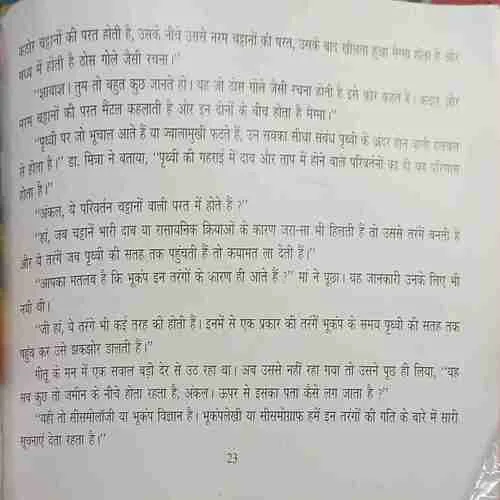 कठोर चट्टानों की परत होती है, उसके नीचे उससे नरम चट्टानों की परत, उसके बाद खौलता हुआ मैग्मा होता है और
मध्य में होती है ठोस गोले जैसी रचना।"
"शाबाश! तुम तो बहुत कुछ जानते हो। यह जो ठोस गोले जैसी रचना होती है इसे कोर कहते हैं। कठोर और
नरम चट्टानों की परत मैंटल कहलाती है और इन दोनों के बीच होता है मैग्मा।"
"पृथ्वी पर जो भूचाल आते हैं या ज्वालामुखी फटते हैं, उन सबका सीधा संबंध पृथ्वी के अंदर होने वाली हलचल
से होता है।" डा. मित्रा ने बताया, "पृथ्वी की गहराई में दाब और ताप में होने वाले परिवर्तनों का ही यह परिणाम
होता है।"
"अंकल, ये परिवर्तन चट्टानों वाली परत में होते हैं ?"
"हां, जब चट्टानें भारी दाब या रासायनिक क्रियाओं के कारण जरा-सा भी हिलती हैं तो उससे तरंगें बनती हैं
और ये तरंगें जब पृथ्वी की सतह तक पहुंचती हैं तो कयामत ला देती हैं।"
"आपका मतलब है कि भूकंप इन तरंगों के कारण ही आते हैं ?" मां ने पूछा। यह जानकारी उनके लिए भी
नयी थी।
"जी हां, ये तरंगें भी कई तरह की होती हैं। इनमें से एक प्रकार की तरंगें भूकंप के समय पृथ्वी की सतह तक
पहुंच कर उसे झकझोर डालती हैं।"
गीतू के मन में एक सवाल बड़ी देर से उठ रहा था। अब उससे नहीं रहा गया तो उसने पूछ ही लिया, "यह
सब कुछ तो जमीन के नीचे होता रहता है, अंकल। ऊपर से इसका पता कैसे लग जाता है ?"
"यही तो सीसमोलॉजी या भूकंप विज्ञान है। भूकंपलेखी या सीसमोग्राफ हमें इन तरंगों की गति के बारे में सारी
सूचनाएं देता रहता है।"
23